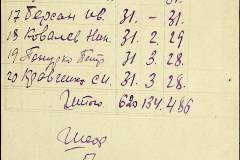 17 Берсан Ив. 31. – 31.
18 Ковалев Ник. 31. 2. 29
19 Петр 31 3. 28.
20 Кравченко 31. 3. 28.
Итого 620 134. 486